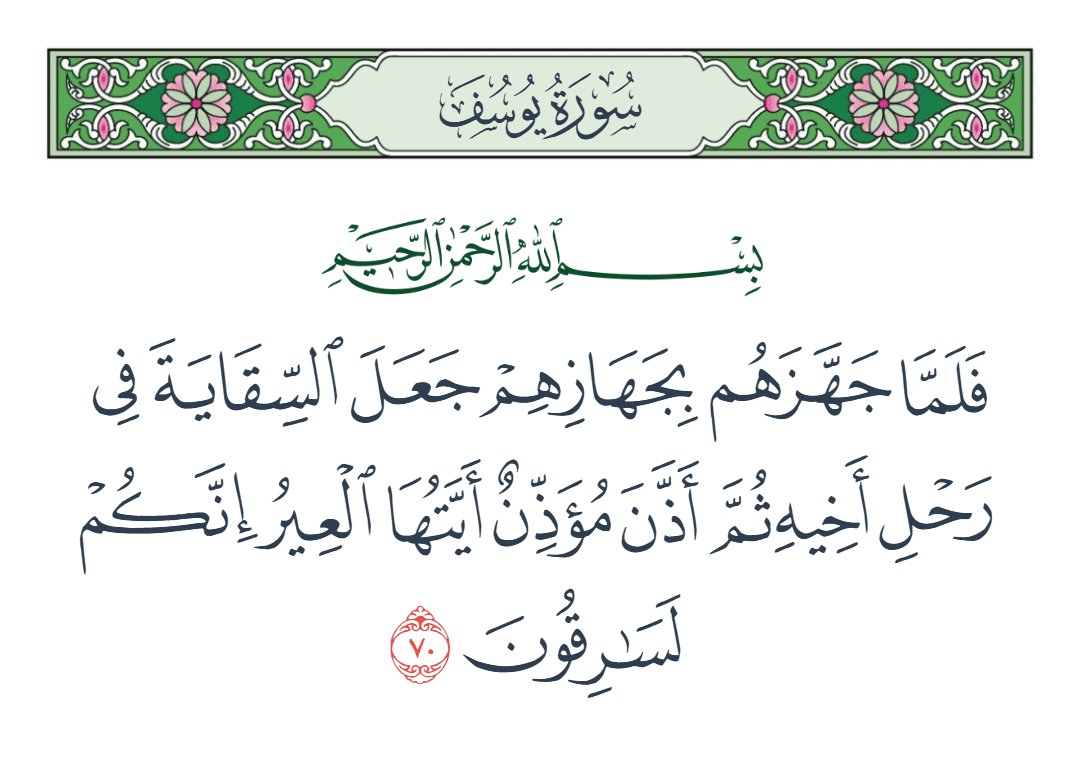 سُورَةُ يُوسُفَ
بِسْمِ ٱللَّهِ ٱلرَّحْمَٰنِ ٱلرَّحِيمِ
فَلَمَّا جَهَّزَهُم بِجَهَازِهِمْ جَعَلَ ٱلسِّقَايَةَ فِى
رَحْلِ أَخِيهِ ثُمَّ أَذَّنَ مُؤَذِّنٌ أَيَّتُهَا ٱلْعِيرُ إِنَّكُمْ
لَسَٰرِقُونَ ٧٠